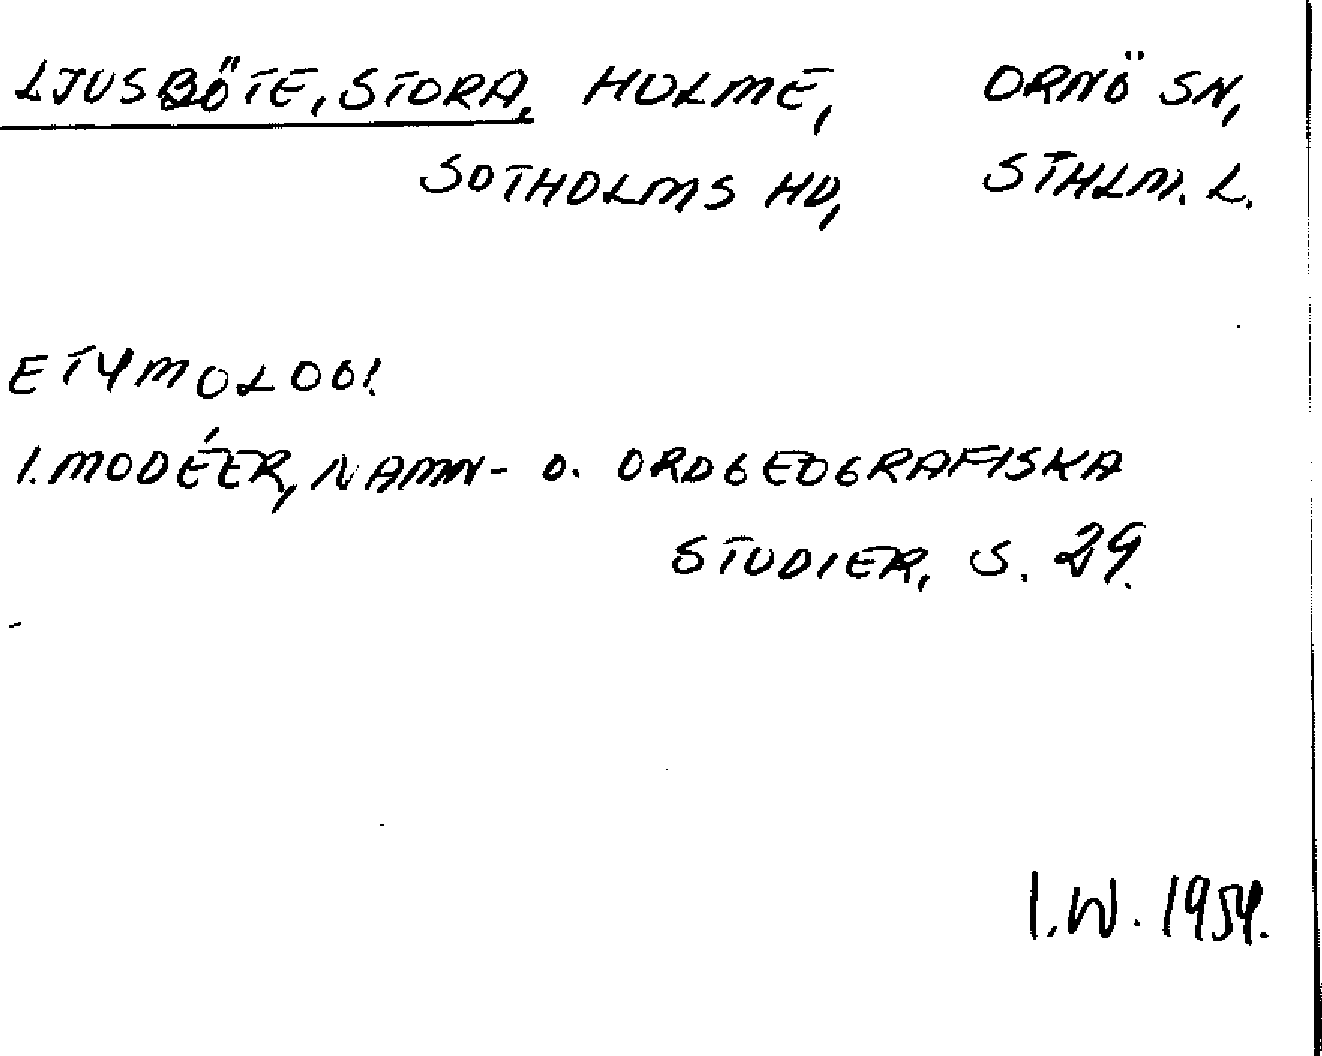 LJUSBÖTE, STORA, HOLME, ORNÖ SN,
SOTHOLMS HD, STHLM. L.
ETYMOLOGI.
I. MODÉER, NAMN- O. ORDGEOGRAFISKA
STUDIER, S. 29.
I.W. 1954.